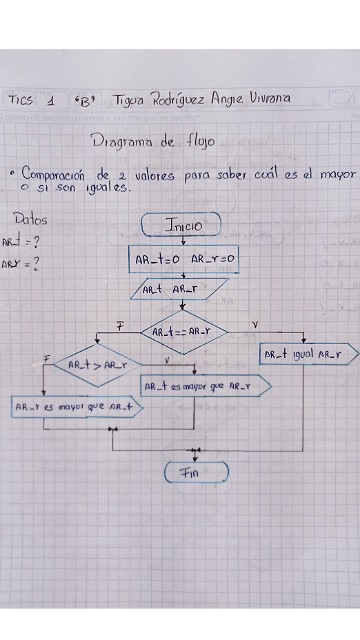 TICS 1 "B" Tigua Rodríguez Angie Viviana
Diagrama de flujo
• Comparación de 2 valores para saber cuál es el mayor
o si son iguales.
Datos
AR_t = ?
AR_r = ?
Inicio
AR_t=0 AR_r=0
AR_t AR_r
AR_t==AR_r
F
V
AR_t igual AR_r
AR_t > AR_r
F
V
AR_t es mayor que AR_r
AR_r es mayor que AR_t
Fin